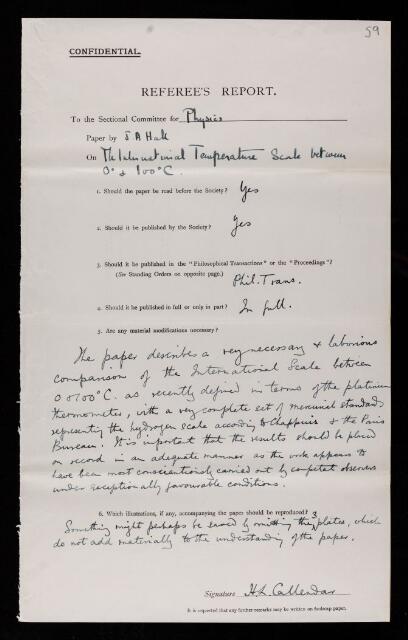 59
CONFIDENTIAL.
REFEREE'S REPORT.
To the Sectional Committee for Physics
Paper by J A Hall
On The International Temperature Scale between
0° & 100°C.
1. Should the paper be read before the Society? Yes
2. Should it be published by the Society? Yes
3. Should it be published in the "Philosophical Transactions" or the "Proceedings"?
(See Standing Orders on opposite page.)
Phil. Trans.
4. Should it be published in full or only in part? In full.
5. Are any material modifications necessary?
The paper describes a very necessary & laborious
comparison of the International Scale between
0 & 100°C. as recently defined in terms of the platinum
thermometer, with a very complete set of mercurial standards
representing the hydrogen scale according to Chappuis & the Paris
Bureau. It is important that the results should be placed
on record in an adequate manner as the work appears to
have been most conscientiously carried out by competent observers
under exceptionally favourable conditions.
6. Which illustrations, if any, accompanying the paper should be reproduced?
Something might perhaps be saved by omitting the 3 plates, which
do not add materially to the understanding of the paper.
Signature H. L. Callendar
It is requested that any further remarks may be written on foolscap paper.